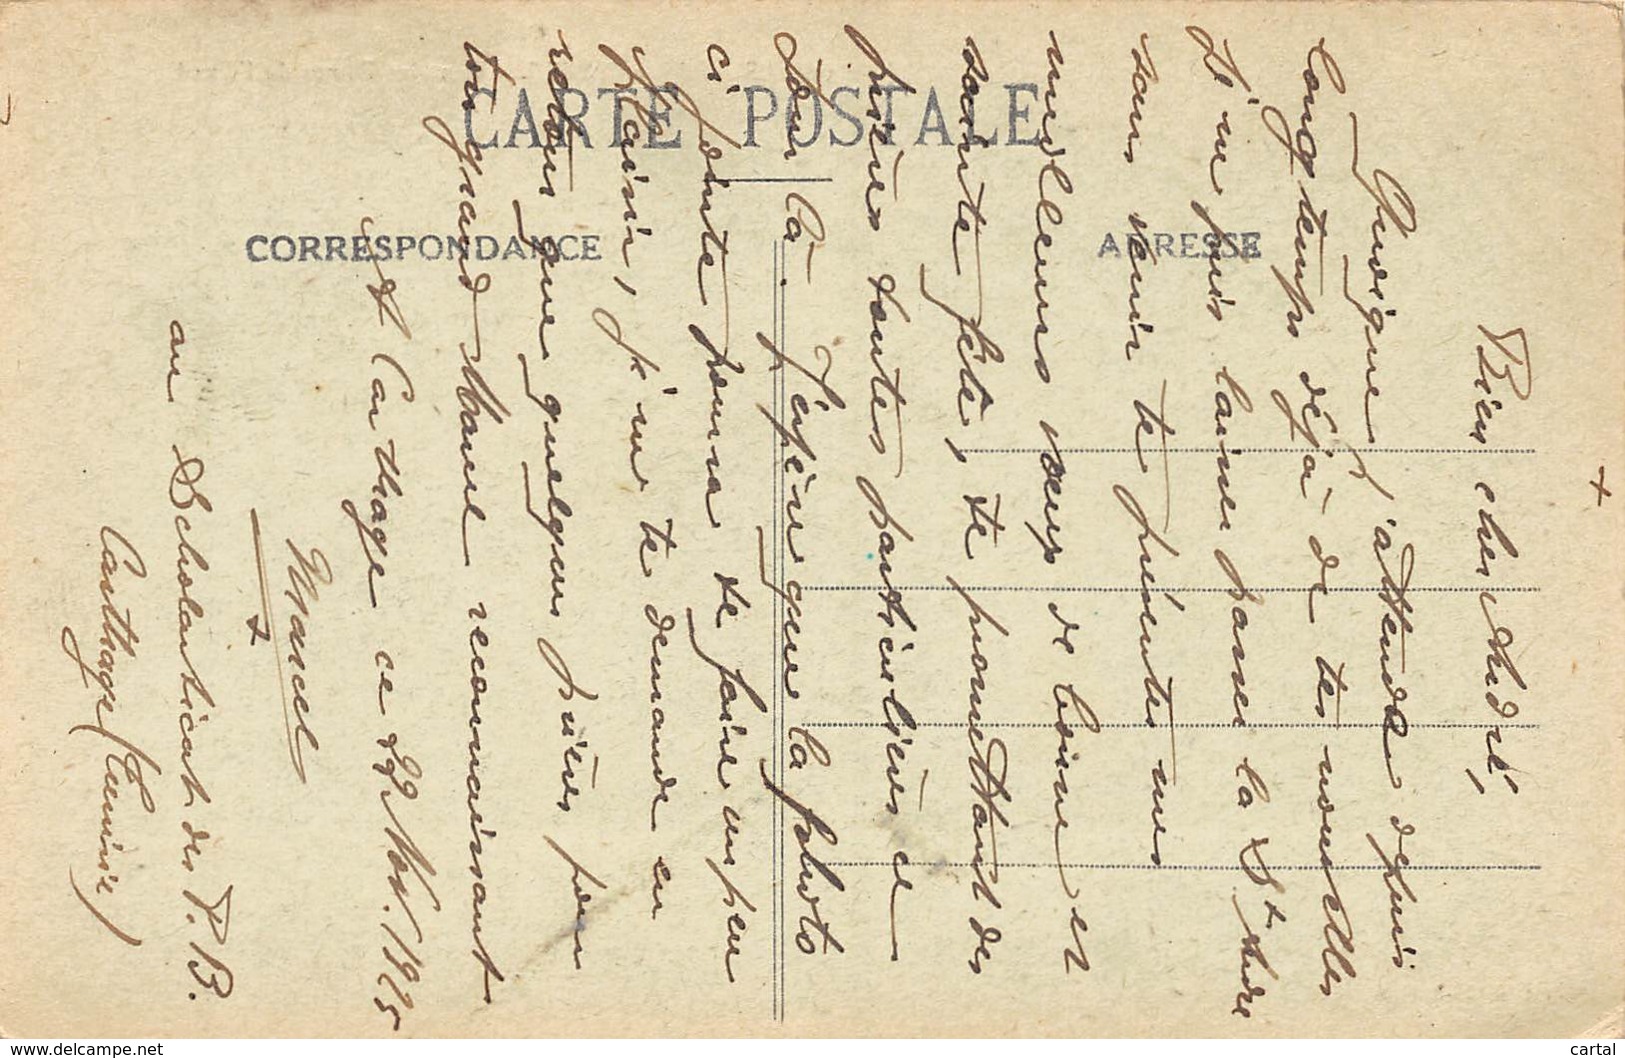 +
Bien cher André,
Quoique j'attende depuis
longtemps déjà de tes nouvelles
je ne puis laisser passer la St André
sans venir te présenter mes
meilleurs vœux de bonne et
sainte fête, te promettant des
prières toutes particulières ce
jour là. J'espère que la photo
ci jointe pourra te faire un peu
plaisir, je ne te demande en
retour que quelques prières pour
ton grand Marcel reconnaissant
A Carthage ce 22 Nov. 1925
Marcel
+
au Scholasticat des P.B.
Carthage (Tunisie)
CARTE POSTALE
CORRESPONDANCE
ADRESSE
www.delcampe.net
cartal